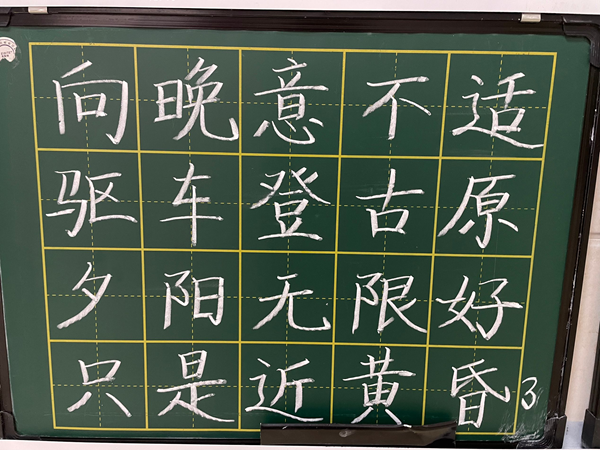 向晚意不适
驱车登古原
夕阳无限好
只是近黄昏 3